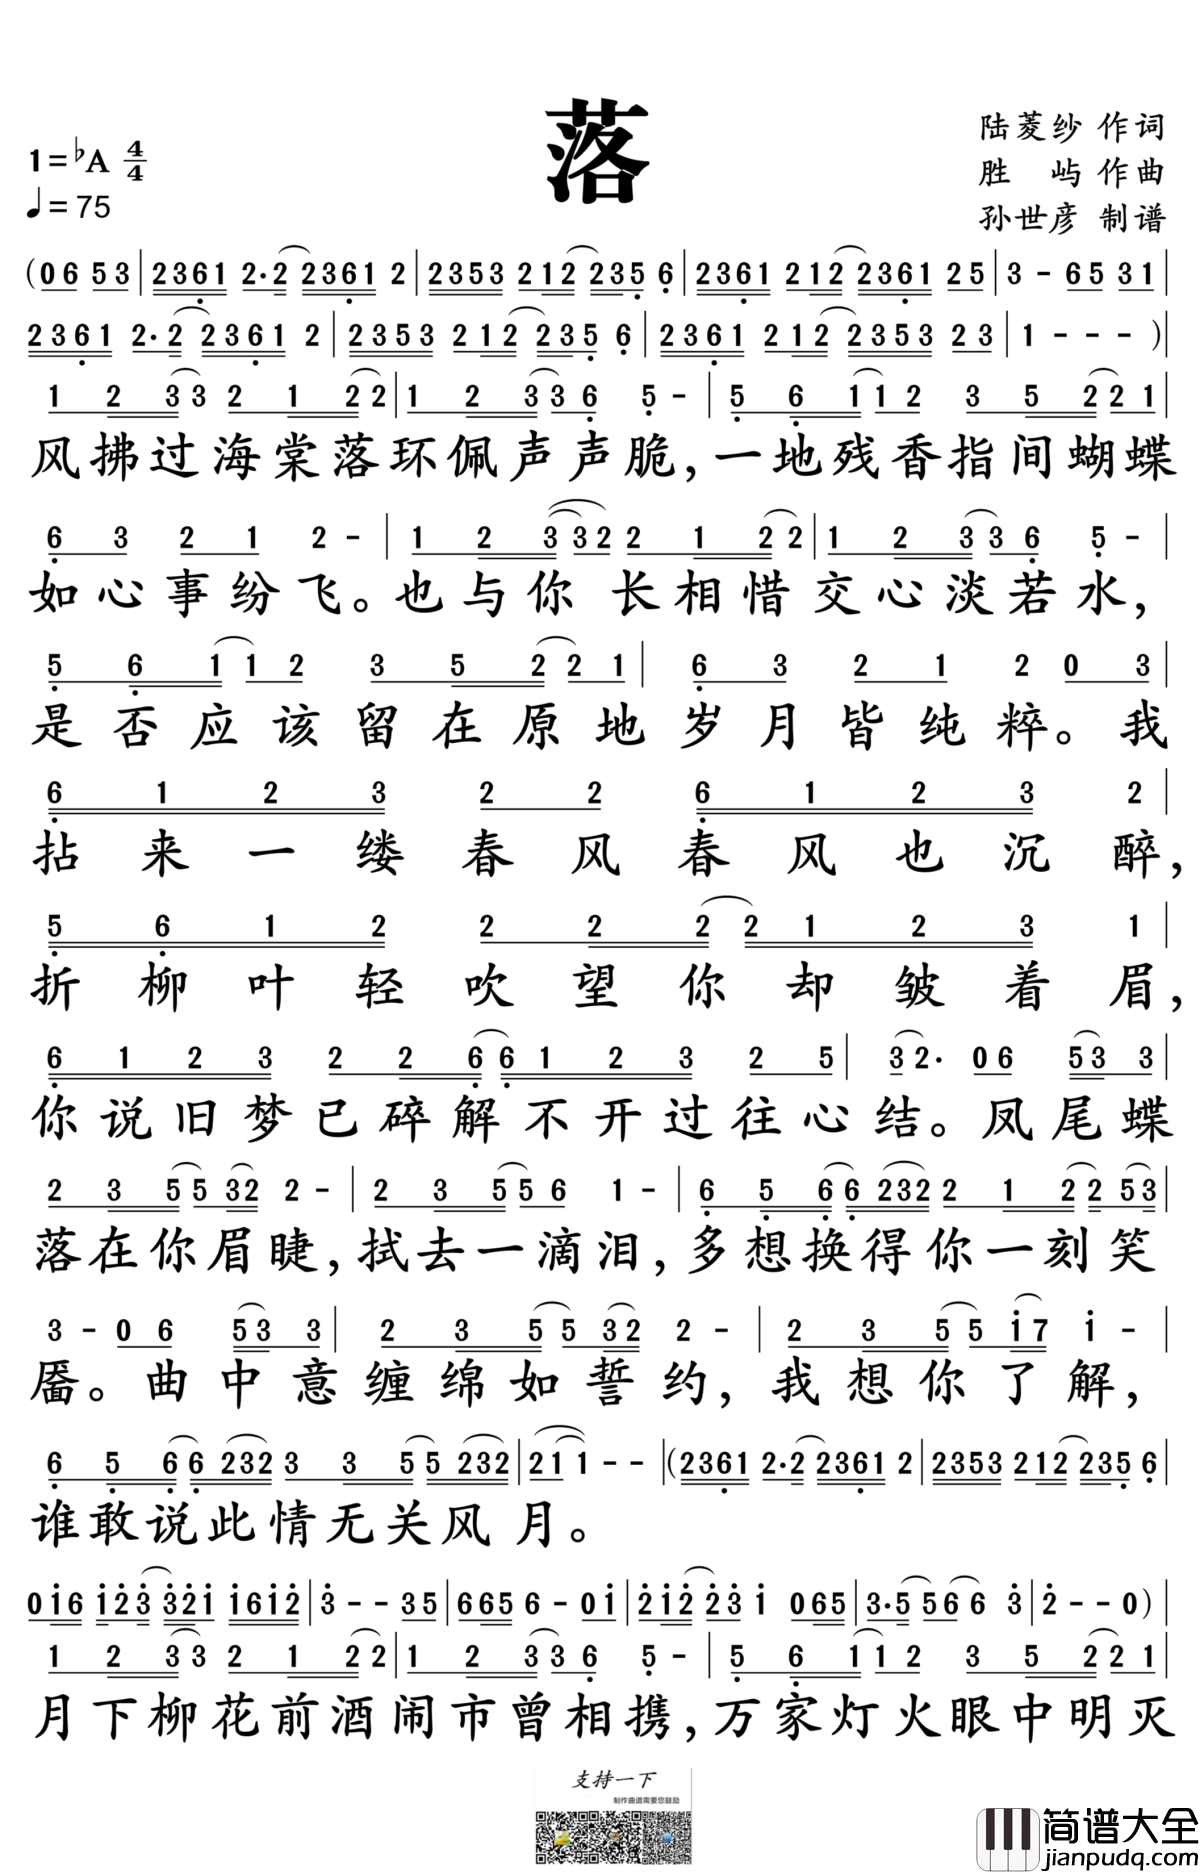 落
陆菱纱 作词
胜 屿 作曲
孙世彦 制谱
1=♭A 4/4
♩=75
(06 53|2361 2·2 2361 2|2353 212 235 6|2361 212 2361 25|3 - 65 31|
2361 2·2 2361 2|2353 212 235 6|2361 212 2353 23|1 - - -)|
1 2 33 2 1 22|1 2 33 6 5 -|5 6 11 2 3 5 22 1|
风拂过海棠落环佩声声脆,一地残香指间蝴蝶
6 3 2 1 2 -|1 2 3 32 2 1 22|1 2 33 6 5 -|
如心事纷飞。也与你长相惜交心淡若水,
5 6 11 2 3 5 22 1|6 3 2 1 2 0 3|
是否应该留在原地岁月皆纯粹。我
6 1 2 3 2 2 6 1 2 3 2|
拈来一缕春风春风也沉醉,
5 6 1 2 2 2 22 1 2 3 1|
折柳叶轻吹望你却皱着眉,
6 1 2 3 2 2 66 1 2 3 2 5|32· 06 53 3|
你说旧梦已碎解不开过往心结。凤尾蝶
2 3 55 32 2 -|2 3 55 6 1 -|6 5 66 232 2 1 22 53|
落在你眉睫,拭去一滴泪,多想换得你一刻笑
3 - 0 6 53 3|2 3 55 32 2 -|2 3 55 i7 i -|
靥。曲中意缠绵如誓约,我想你了解,
6 5 66 232 3 3 55 232|211 - -|(2361 2·2 2361 2|2353 212 235 6|
谁敢说此情无关风月。
0i6 i23 32i i6i2|3 - - 35|665 6 - 0i|2i2 23 i 065|3·5 566 3|2 - - 0)|
1 2 33 2 1 22|1 2 33 6 5 -|5 6 11 2 3 5 22 1|
月下柳花前酒闹市曾相携,万家灯火眼中明灭
支持一下
制作曲谱需要您鼓励
简谱大全
jianpudq.com